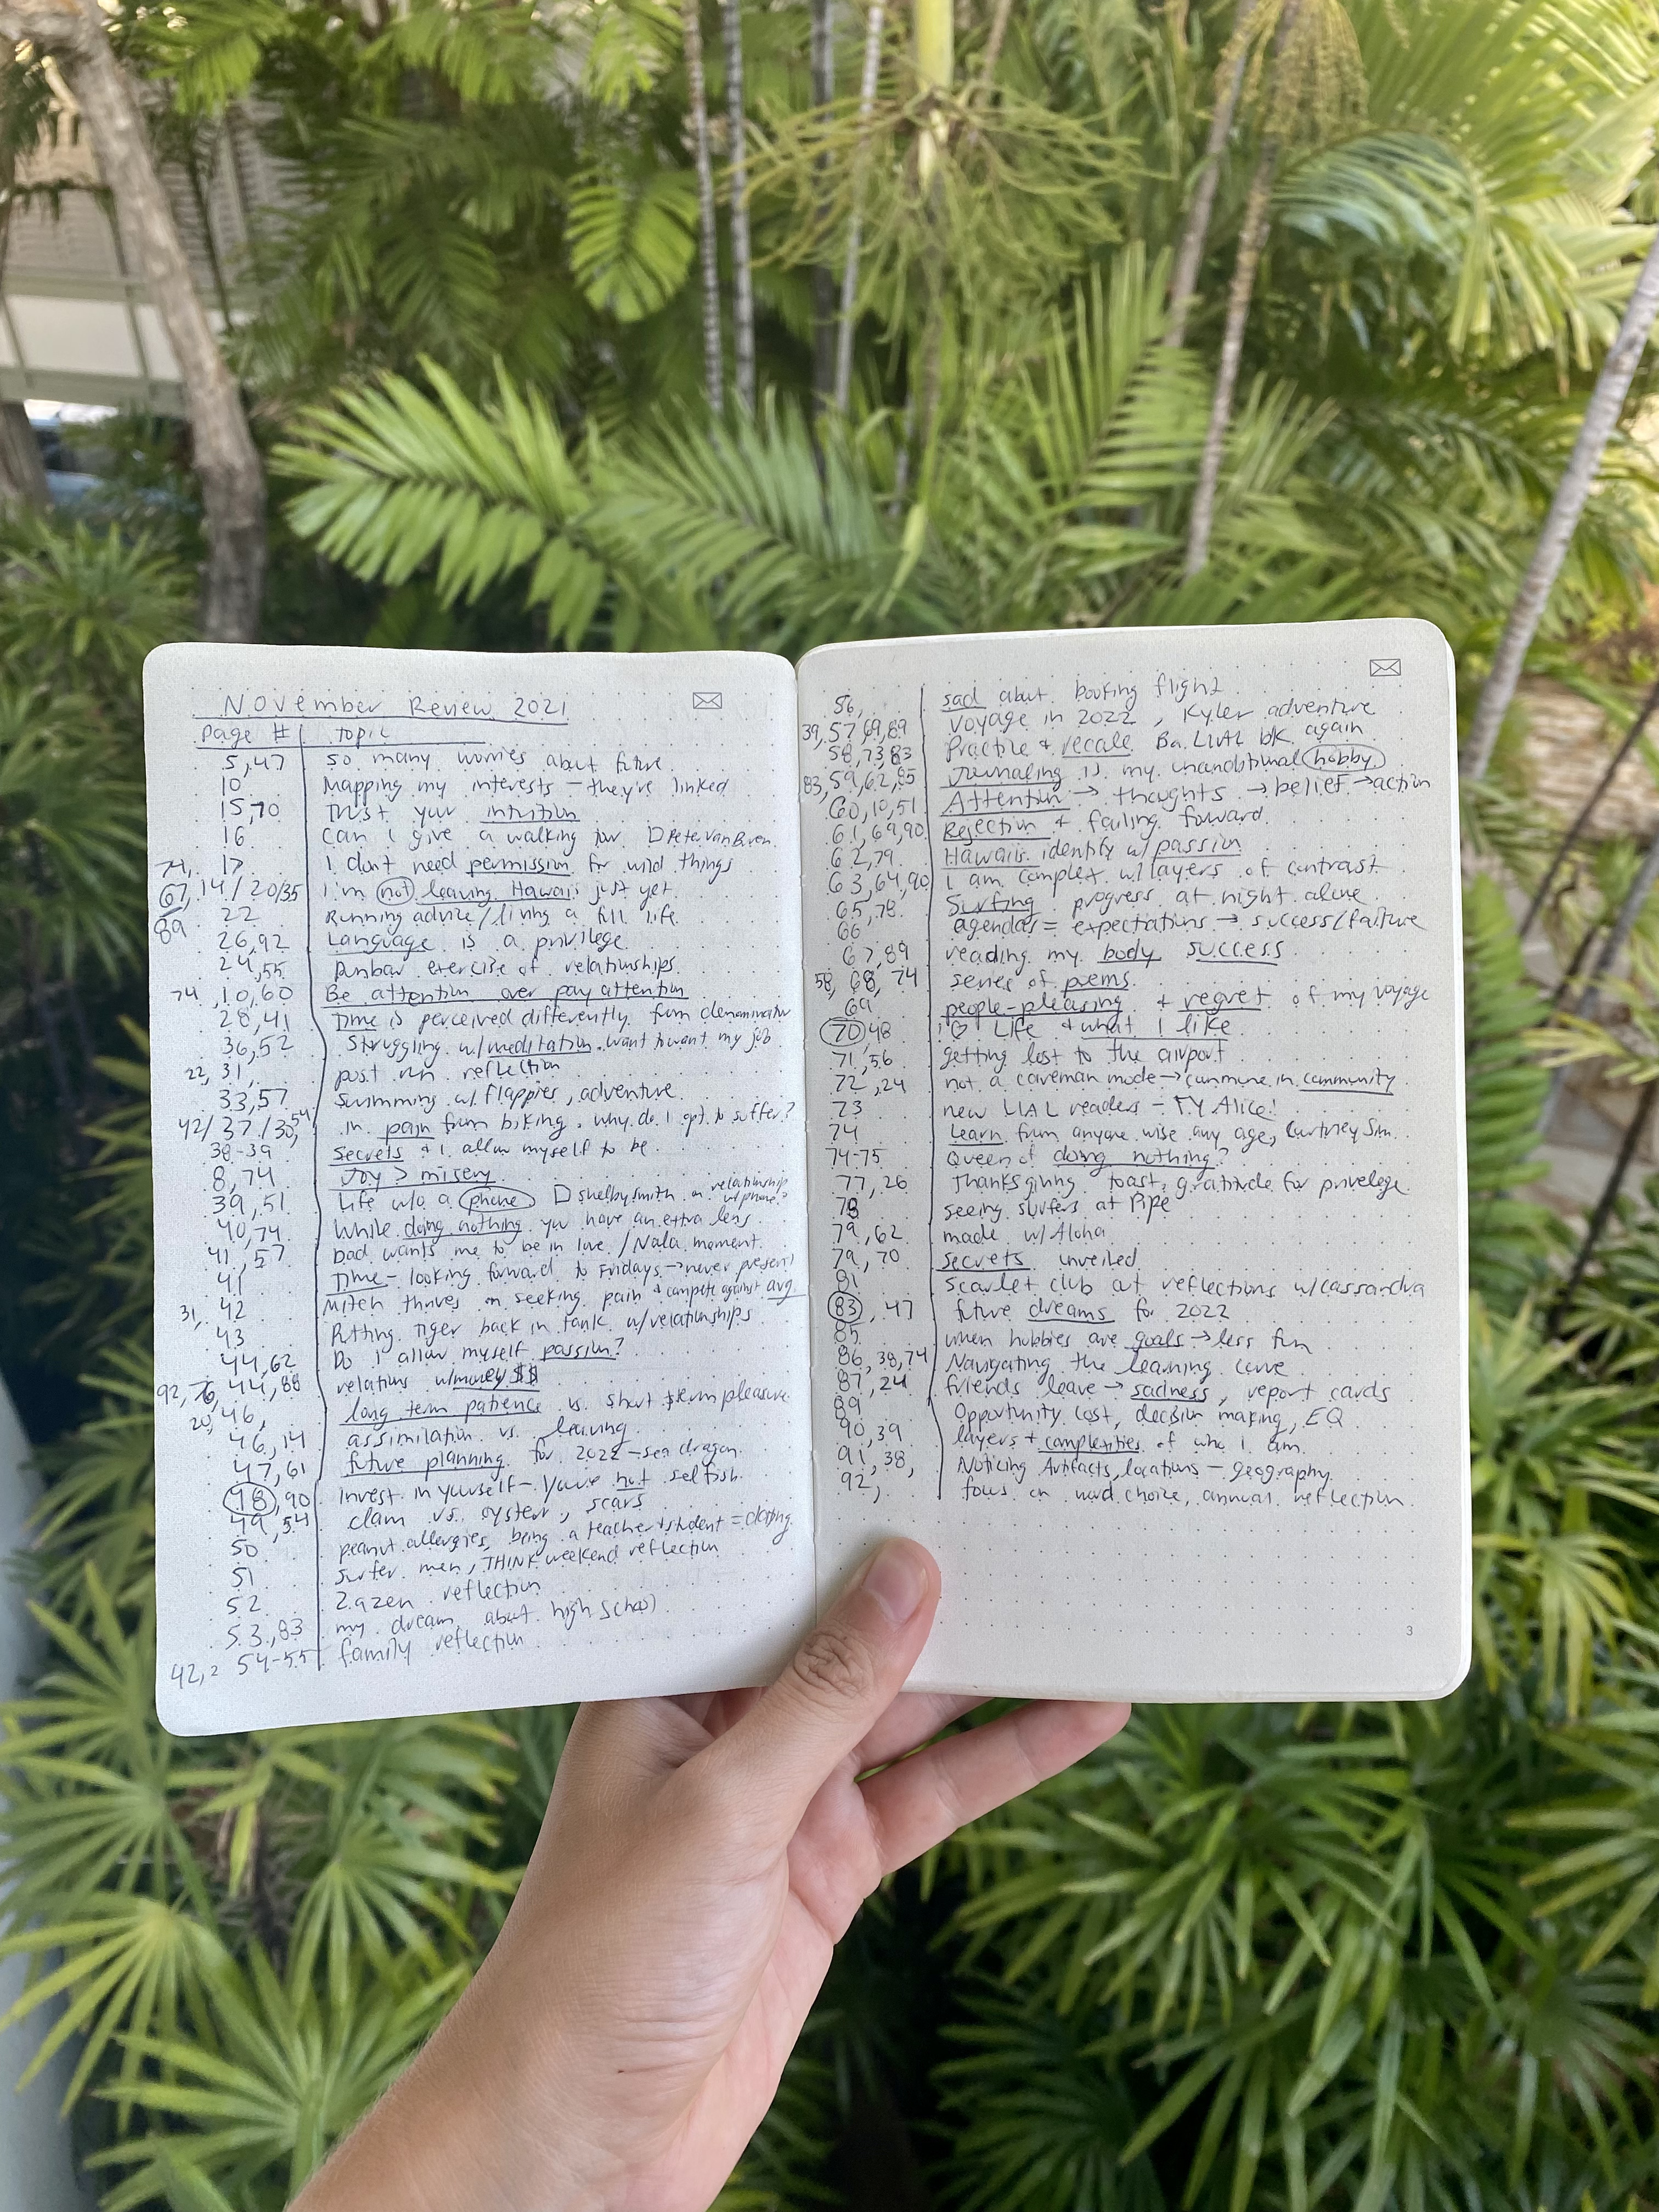 November Review 2021
Page # topic
5,47 so many worries about future
10 Mapping my interests - they're linked
15,70 Trust your intuition
16 can I give a walking tour □ Peter Van Buren
74, 17 I don't need permission for wild things
67, 14/20/35 I'm not leaving Hawaii just yet
89 22 Running advice/living a full life
26,92 Language is a privilege
24,55 Dunbar exercise of relationships
74, 10,60 Be attention over pay attention
28,41 Time is perceived differently from denominator
36,52 Struggling w/meditation. want to want my job
22, 31, post run reflection
33,57 Swimming w/ flappies, adventure
42/37/30,54 in pain from biking. why do I opt to suffer?
38-39 Secrets & I allow myself to be
8,74 Joy > misery
39,51 Life w/o a phone □ Shelby Smith on relationship w/phone?
40,74 While doing nothing you have an extra lens
41,57 bad wants me to be in love /Nala moment.
41 Time - looking forward to Fridays → never present
31, 42 Mitch thrives on seeking pain & compete against avg
43 Putting Tiger back in tank w/relationships
44,62 Do I allow myself passion?
92, 76, 44,88 relations w/money $$
20, 46, long term patience vs. short term pleasure
46,14 assimilation vs. leaving
47,61 future planning for 2022 - sea dragon
48,90 Invest in yourself - you're not selfish
49,54 clam vs. oyster, scars
50 peanut allergies, being a teacher & student =
51 surfer men, THINK weekend reflection
52 Zazen reflection
53,83 my dream about high school
42, 54-55 family reflection
56, sad about booking flight
39,57,69,89 Voyage in 2022, Kyler adventure
58,73,83 Practice & recall. Ba. LIAL bk again
83,59,62,85 Journaling is my unconditional hobby
60,10,51 Attention → thoughts → belief → action
61,69,90 Rejection & failing forward
62,79 Hawaii identify w/ passion
63,64,90 I am complex w/layers of contrast
65,78 Surfing progress at night alone
66 agendas = expectations → success/failure
67,89 reading my body success
58, 68, 74 series of poems
69 people-pleasing & regret of my voyage
70,48 I ♡ Life & what I like
71,56 getting lost to the airport
72,24 not a caveman mode → commune in community
73 new LIAL readers - TY Alice!
74 Learn from anyone wise any age, Courtney Sim
74-75 Queen of doing nothing?
77,26 Thanksgiving toast, gratitude for privelege
78 seeing surfers at Pipe
79,62 made w/ Aloha
79,70 secrets unveiled
81 Scarlet club art reflections w/cassandra
83,47 future dreams for 2022
85 when hobbies are goals → less fun
86,38,74 Navigating the learning curve
87,24 friends leave → sadness, report cards
89 Opportunity cost, decision making, EQ
90,39 layers + complexities of who I am
91,38, Noticing Artifacts, locations - geography
92, focus on word choice, annual reflection
3